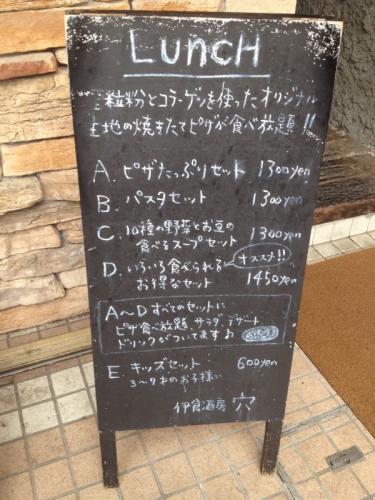 LuncH
粒粉とコラーゲンを使ったオリジナル
地の焼きたてピザが食べ放題!!
A. ピザたっぷりセット 1300yen
B. パスタセット 1300yen
C 10種の野菜とお豆の
食べるスープセット 1300yen
オススメ!!
D. いろいろ食べられる
お得なセット 1450yen
A〜D すべてのセットに
ピザ食べ放題、サラダ、デザート
ドリンクがついてます♪
E. キッズセット 600yen
3〜9才のお子様い
伊食酒房 穴